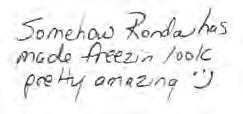 Somehow Ronda has
made freezin look
pretty amazing :)